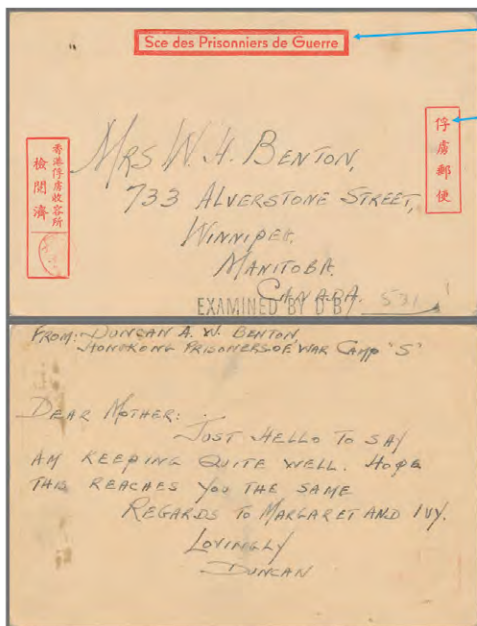 Sce des Prisonniers de Guerre
俘虜郵便
香港俘虜收容所
檢閲濟
MRS W. H. BENTON,
733 ALVERSTONE STREET,
WINNIPEG.
MANITOBA.
CANADA.
EXAMINED BY D.B/
531
FROM: DUNCAN A. W. BENTON
HONGKONG PRISONERS OF WAR CAMP 'S'
DEAR MOTHER:
JUST HELLO TO SAY
AM KEEPING QUITE WELL. HOPE
THIS REACHES YOU THE SAME
REGARDS TO MARGARET AND IVY.
LOVINGLY
DUNCAN